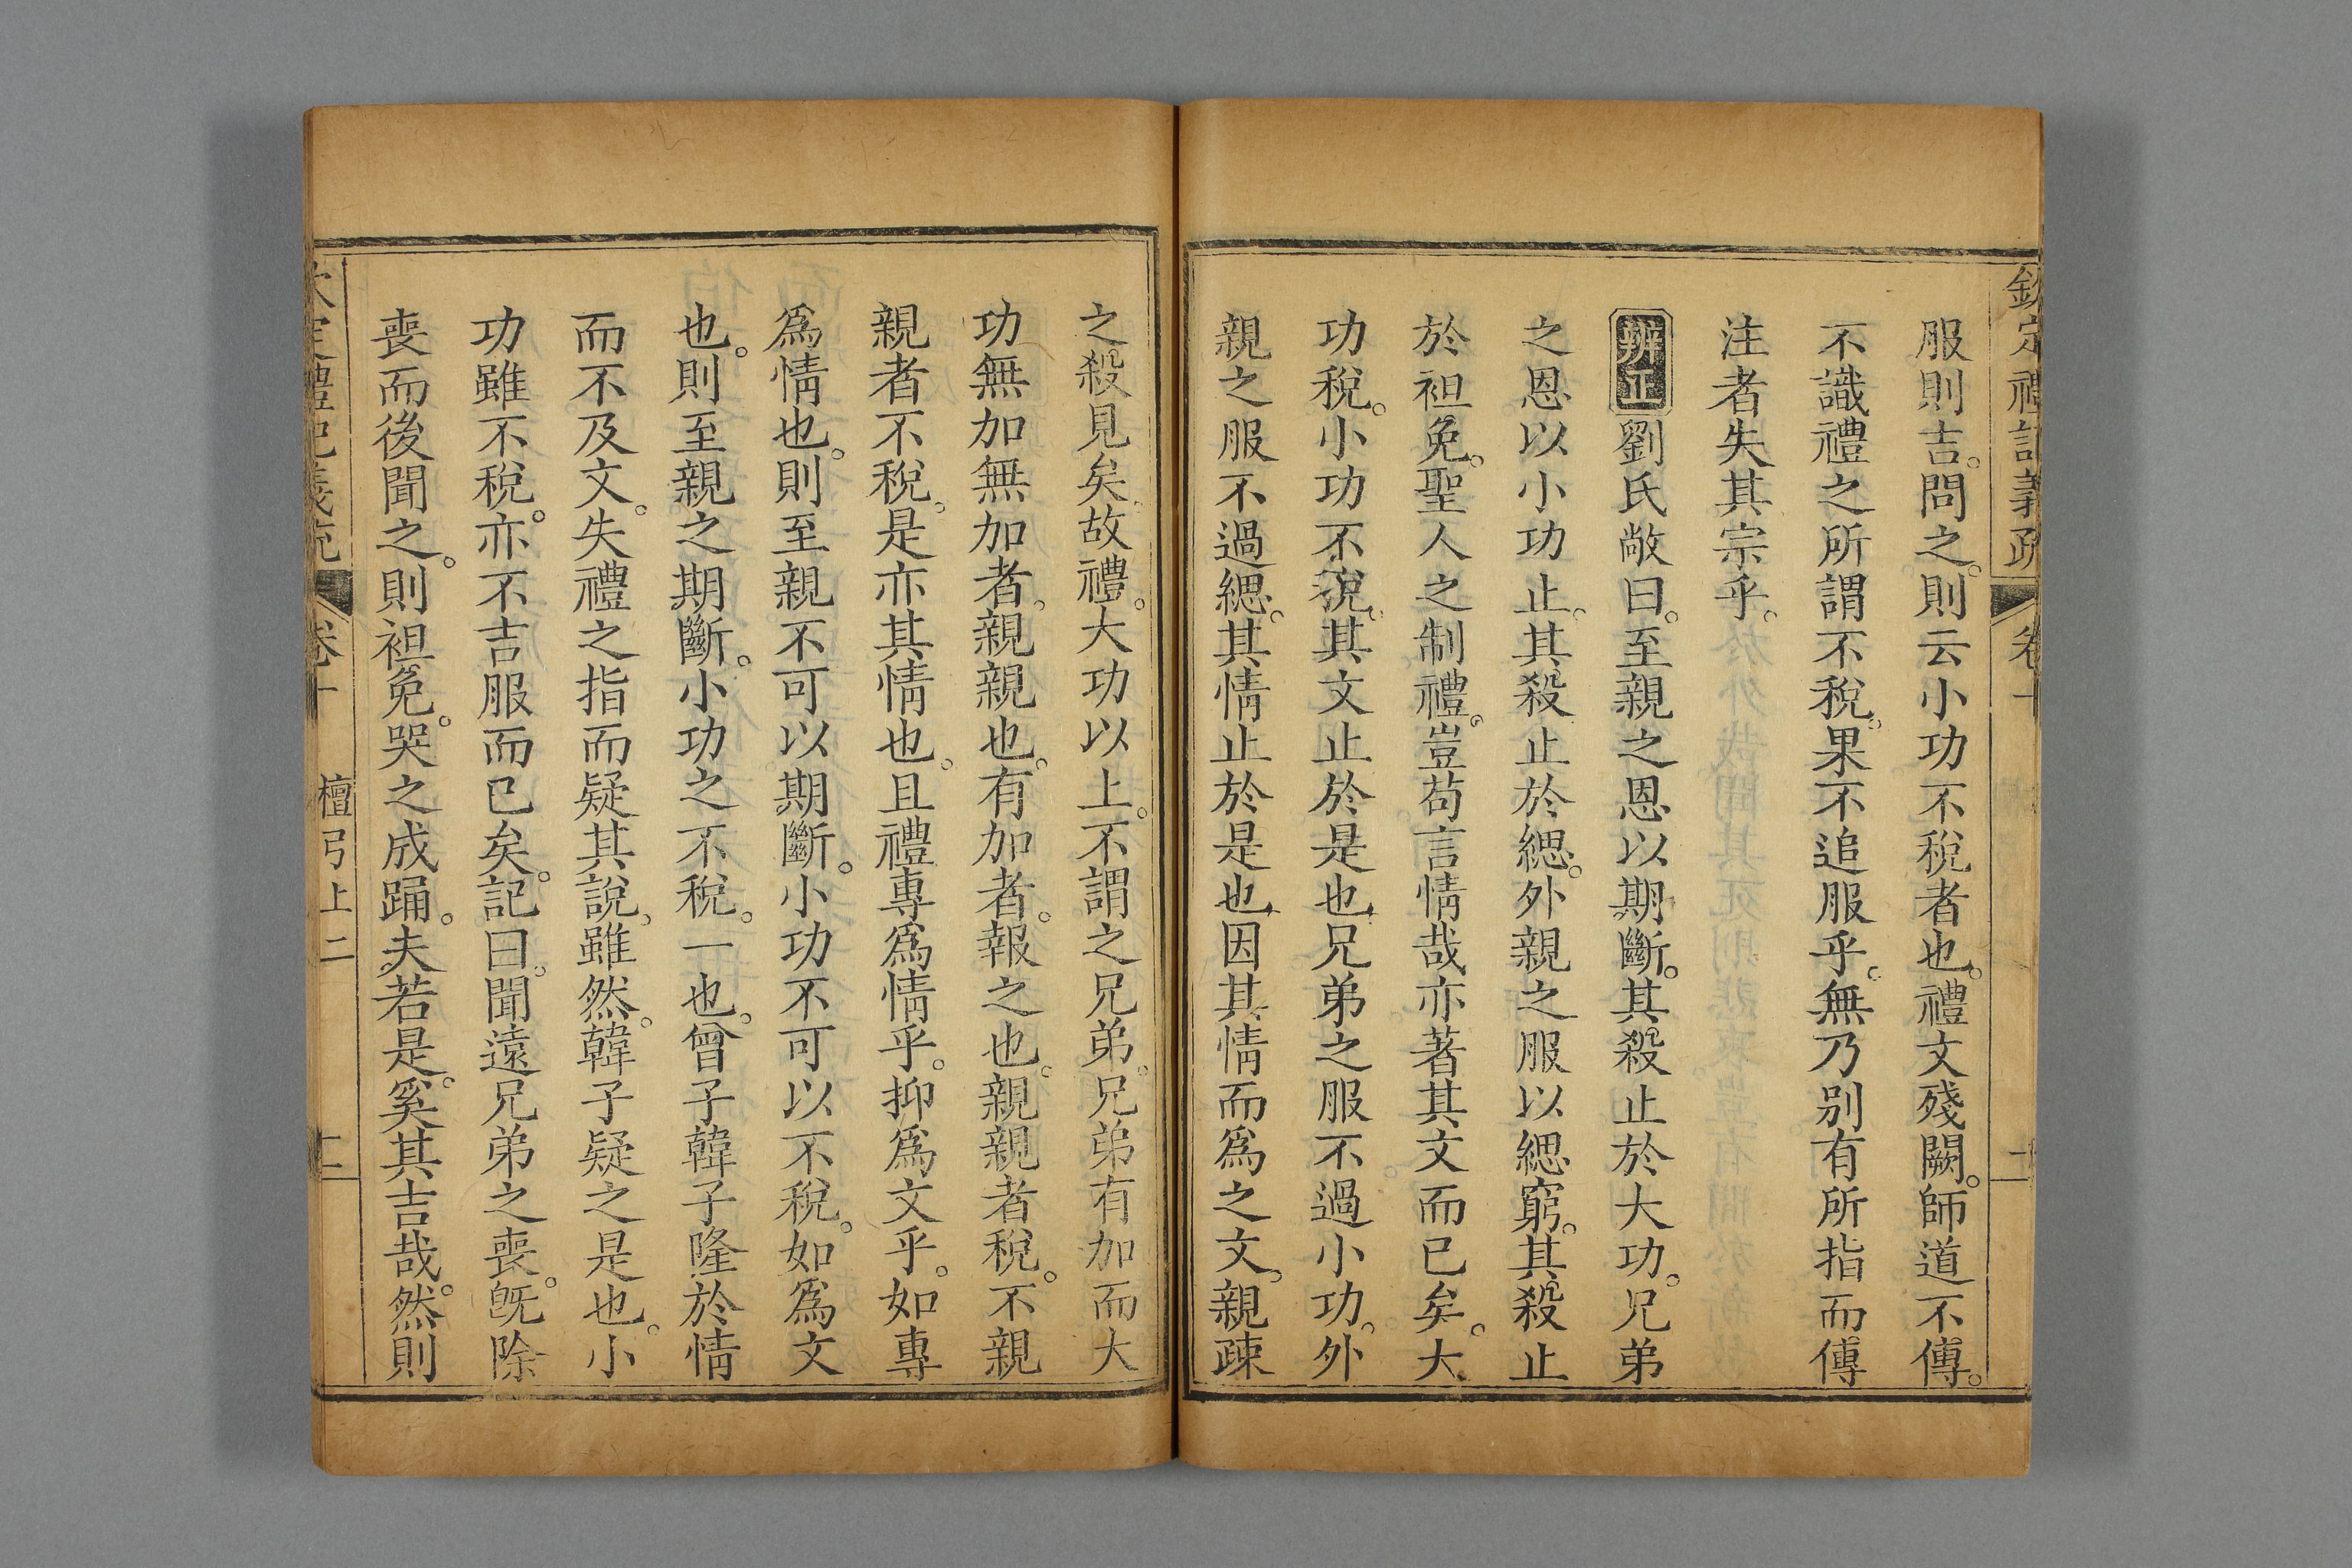 欽定禮記義疏 卷十 二
服則吉。問之。則云小功不稅者也。禮文殘闕。師道不傳。
不識禮之所謂不稅。果不追服乎。無乃别有所指而傳
注者失其宗乎。
辨正 劉氏敞曰。至親之恩以期斷。其殺止於大功。兄弟
之恩以小功止。其殺止於緦。外親之服以緦窮。其殺止
於袒免。聖人之制禮。豈苟言情哉亦著其文而已矣。大
功稅。小功不稅。其文止於是也。兄弟之服不過小功。外
親之服不過緦。其情止於是也。因其情而爲之文。親疎
之殺見矣。故禮。大功以上。不謂之兄弟。兄弟有加而大
功無加無加者。親親也。有加者。報之也。親親者稅。不親
親者不稅。是亦其情也。且禮專爲情乎。抑爲文乎。如專
爲情也。則至親不可以期斷。小功不可以不稅。如爲文
也。則至親之期斷。小功之不稅。一也。曾子韓子隆於情
而不及文。失禮之指而疑其說。雖然。韓子疑之是也。小
功雖不稅。亦不吉服而已矣。記曰。聞遠兄弟之喪。旣除
喪而後聞之。則袒免。哭之成踊。夫若是。奚其吉哉。然則
定禮記義疏 卷十 檀弓上二 二